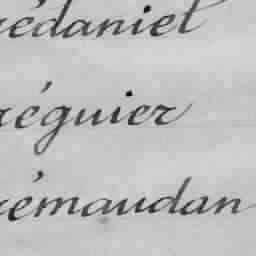 rédaniel
réguier
rémaudan